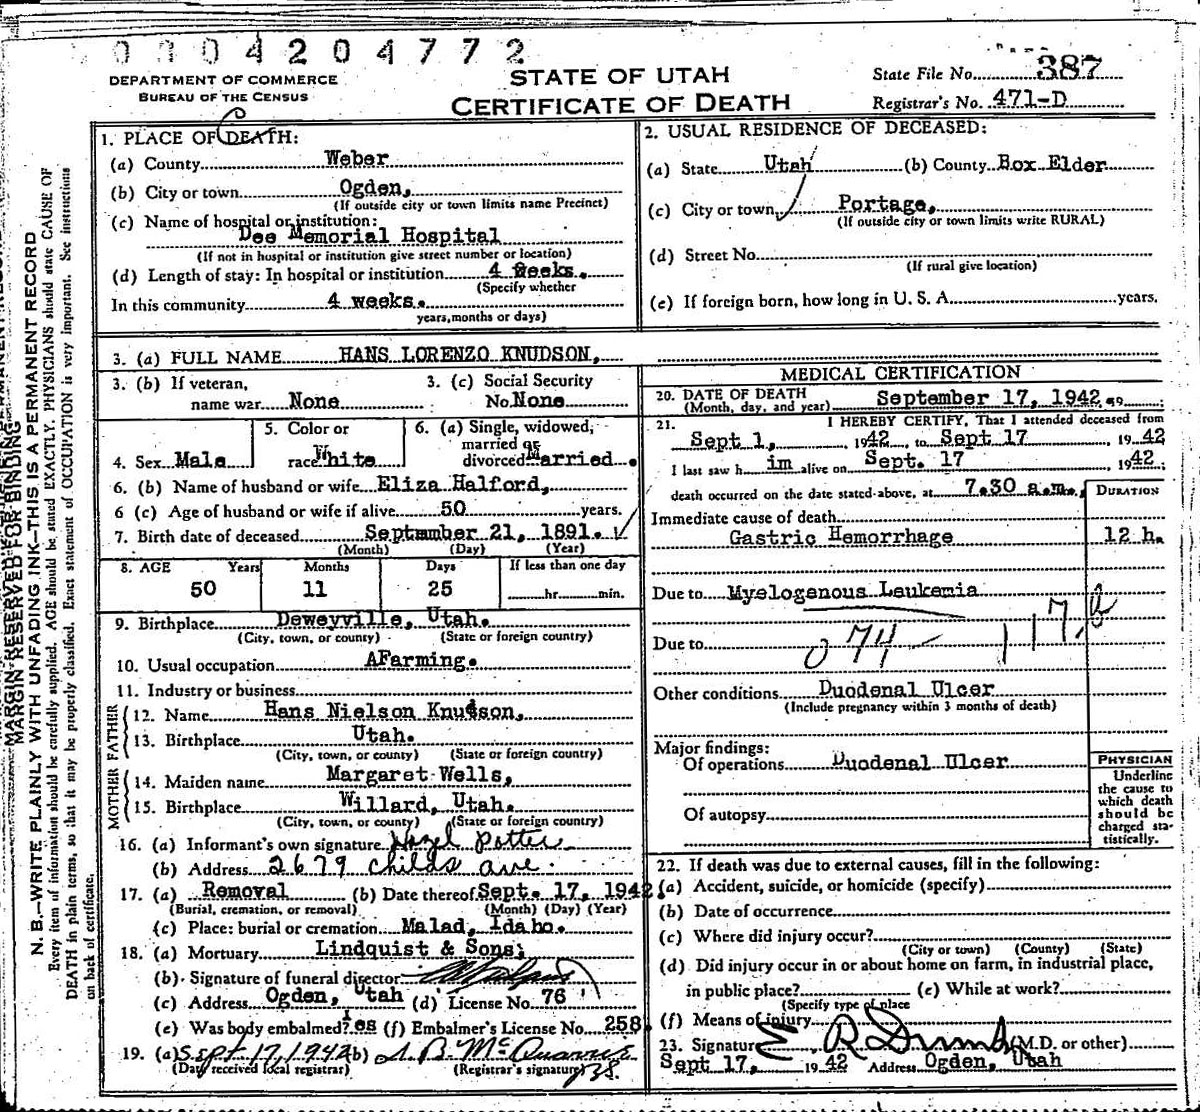 0004204772
DEPARTMENT OF COMMERCE
BUREAU OF THE CENSUS
STATE OF UTAH
CERTIFICATE OF DEATH
State File No. 387
Registrar's No. 471-D
1. PLACE OF DEATH:
(a) County Weber
(b) City or town Ogden,
(If outside city or town limits name Precinct)
(c) Name of hospital or institution:
Dee Memorial Hospital
(If not in hospital or institution give street number or location)
(d) Length of stay: In hospital or institution 4 weeks.
(Specify whether
In this community 4 weeks.
years, months or days)
2. USUAL RESIDENCE OF DECEASED:
(a) State Utah (b) County Box Elder
(c) City or town Portage,
(If outside city or town limits write RURAL)
(d) Street No.
(If rural give location)
(e) If foreign born, how long in U. S. A. years.
3. (a) FULL NAME HANS LORENZO KNUDSON,
3. (b) If veteran, name war None
3. (c) Social Security No. None
4. Sex Male
5. Color or race White
6. (a) Single, widowed, married or divorced Married.
6. (b) Name of husband or wife Eliza Halford,
6 (c) Age of husband or wife if alive 50 years.
7. Birth date of deceased September 21, 1891.
(Month) (Day) (Year)
8. AGE Years Months Days If less than one day
50 11 25 hr. min.
9. Birthplace Deweyville, Utah.
(City, town, or county) (State or foreign country)
10. Usual occupation AFarming.
11. Industry or business
FATHER
12. Name Hans Nielson Knudson,
13. Birthplace Utah.
(City, town, or county) (State or foreign country)
MOTHER
14. Maiden name Margaret Wells,
15. Birthplace Willard, Utah.
(City, town, or county) (State or foreign country)
16. (a) Informant's own signature Hazel Potter
(b) Address 2679 Childs ave.
17. (a) Removal (b) Date thereof Sept. 17, 1942.
(Burial, cremation, or removal) (Month) (Day) (Year)
(c) Place: burial or cremation Malad, Idaho.
18. (a) Mortuary Lindquist & Sons,
(b) Signature of funeral director
(c) Address Ogden, Utah (d) License No. 76
(e) Was body embalmed? Yes (f) Embalmer's License No. 258.
19. (a) Sept 17, 1942 (b)
(Day received local registrar) (Registrar's signature)
MEDICAL CERTIFICATION
20. DATE OF DEATH
(Month, day, and year) September 17, 1942.
21. I HEREBY CERTIFY, That I attended deceased from
Sept 1, 1942 to Sept 17, 1942
I last saw him alive on Sept. 17 1942;
death occurred on the date stated above, at 7.30 a.m.,
DURATION
Immediate cause of death
Gastric Hemorrhage 12 h.
Due to Myelogenous Leukemia
Due to 074
Other conditions Duodenal Ulcer
(Include pregnancy within 3 months of death)
Major findings:
Of operations Duodenal Ulcer
Of autopsy
PHYSICIAN
Underline
the cause to
which death
should be
charged sta-
tistically.
22. If death was due to external causes, fill in the following:
(a) Accident, suicide, or homicide (specify)
(b) Date of occurrence
(c) Where did injury occur?
(City or town) (County) (State)
(d) Did injury occur in or about home on farm, in industrial place,
in public place? (e) While at work?
(Specify type of place
(f) Means of injury
23. Signature E R (M.D. or other)
Sept 17, 1942 Address Ogden, Utah
MARGIN RESERVED FOR BINDING
N. B.—WRITE PLAINLY WITH UNFADING INK—THIS IS A PERMANENT RECORD
Every item of information should be carefully supplied. AGE should be stated EXACTLY. PHYSICIANS should state CAUSE OF
DEATH in plain terms, so that it may be properly classified. Exact statement of OCCUPATION is very important. See instructions
on back of certificate.